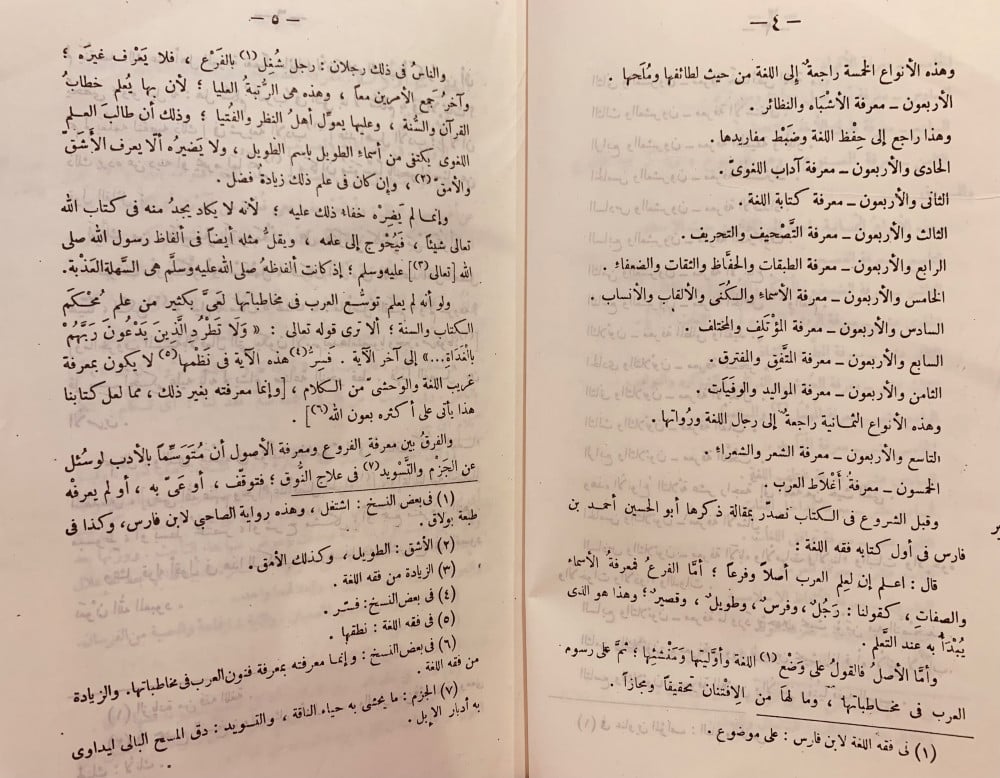 — ٤ —
وهذه الأنواع الخمسة راجعةٌ إلى اللغة من حيث لطائفها ومُلَحها .
الأربعون ــ معرفة الأشْبَاه والنظائر .
وهذا راجع إلى حِفْظ اللغة وضَبْط مفاريدها .
الحادى والأربعون ــ معرفة آداب اللغوىّ .
الثانى والأربعون ــ معرفة كتابة اللغة .
الثالث والأربعون ــ معرفة التَّصْحيف والتحريف .
الرابع والأربعون ــ معرفة الطبقات والحفَّاظ والثقات والضعفاء .
الخامس والأربعون ــ معرفة الأسماء والكُنَى والألقاب والأنساب .
السادس والأربعون ــ معرفة المؤْتَلِف والمختلف .
السابع والأربعون ــ معرفة المتَّفِق والمفترق .
الثامن والأربعون ــ معرفة المواليد والوفَيَات .
وهذه الأنواع الثمانية راجعةٌ إلى رجال اللغة ورُواتها .
التاسع والأربعون ــ معرفة الشعر والشعراء .
الخمسون ــ معرفةُ أغْلَاط العرب .
وقبل الشروع فى الكتاب نصدّر بمقالة ذكرها أبو الحسين أحمد بن
فارس فى أول كتابه فقه اللغة :
قال : اعلم إن لعلم العرب أصلاً وفرعاً ؛ أمَّا الفرعُ فمعرفةُ الأسماء
والصفات ، كقولنا : رَجُلٌ ، وفرسٌ ، وطويلٌ ، وقصيرٌ ؛ وهذا هو الذى
يُبْدَأ به عند التَّعلم .
وأمَّا الأصلُ فالقولُ على وَضْع (١) اللغة وأوَّليتها ومَنْشئها ؛ ثمَّ على رسوم
العرب فى مخاطباتها ، وما لها من الافْتنان تحقيقاً ومجازاً .
(١) فى فقه اللغة لابن فارس : على موضوع .
— ٥ —
والناسُ فى ذلك رجلان : رجل شُغِل (١) بالفَرْع ، فلا يَعْرف غيرَه ؛
وآخرُ جمع الأمرين معاً ، وهذه هى الرتبةُ العليا ؛ لأن بها يُعلم خطابُ
القرآن والسُّنة ، وعليها يعوّل أهلُ النظر والفُتيا ؛ وذلك أن طالبَ العلم
اللغوى يكتفى من أسماء الطويل باسم الطويل ، ولا يَضيرُه ألّا يعرف الأشَقّ
والأمقّ (٢) ، وإن كان فى علم ذلك زيادةُ فضل .
وإنما لم يَضِرْه خفاءُ ذلك عليه ؛ لأنه لا يكاد يجدُ منه فى كتاب الله
تعالى شيئاً ، فَيُحْوج إلى علمه ، ويقلُّ مثله أيضاً فى ألفاظ رسول الله صلى
الله [تعالى (٣)] عليه وسلم ؛ إذ كانت ألفاظه صلى الله عليه وسلَّم هى السَّهلة العَذْبة.
ولو أنه لم يعلم توسُّع العرب فى مخاطباتها لَعَىَّ بكثير من علم مُحْكَم
الكتاب والسنة ؛ ألا ترى قوله تعالى : « وَلَا تَطْرُدِ الَّذِينَ يَدْعُونَ رَبَّهُمْ
بِالْغَدَاةِ...» إلى آخر الآية . فَسِرُّ (٤) هذه الآية فى نَظْمها (٥) لا يكون بمعرفة
غريب اللغة والوَحْشىّ من الكلام ، [وإنما معرفته بغير ذلك ، مما لعل كتابنا
هذا يأتى على أكثره بعون الله (٦)] .
والفرقُ بين معرفة الفروع ومعرفة الأصول أن مُتَوَسِّماً بالأدب لو سُئل
عن الجَزْم والتَّسْويد (٧) فى علاج النُّوق ؛ فتوقَّف ، أو عَىّ به ، أو لم يعرفْه
(١) فى بعض النسخ : اشتغل ، وهذه رواية الصاحبي لابن فارس، وكذا فى
طبعة بولاق .
(٢) الأشق : الطويل ، وكذلك الأمق .
(٣) الزيادة من فقه اللغة .
(٤) فى بعض النسخ: فسّر .
(٥) فى فقه اللغة : نطقها .
(٦) فى بعض النسخ : وإنما معرفته بمعرفة فنون العرب فى مخاطباتها. والزيادة
من فقه اللغة .
(٧) الجزم : ما يحشى به حياء الناقة ، والتسويد : دق المسح البالى ليداوى
به أدبار الإبل .